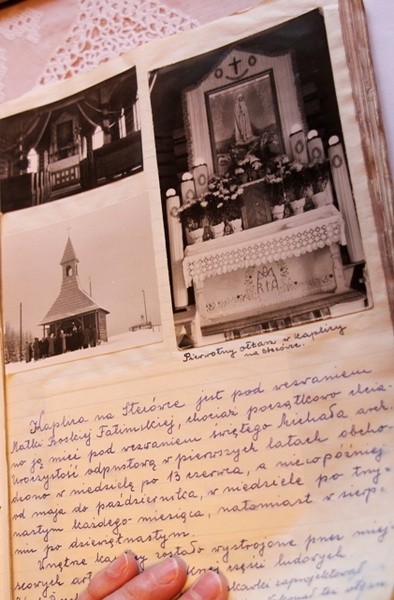 MARIA
Pierwotny ołtarz w kaplicy
na Stecówce.
Kaplica na Stecówce jest pod wezwaniem
Matki Boskiej Fatimskiej, chociaż początkowo chcia-
no ją mieć pod wezwaniem świętego Michała arch.
Uroczystość odpustową w pierwszych latach obcho-
dzono w niedzielę po 13 czerwca, a nieco później
od maja do października, w niedziele po trzy-
nastym każdego miesiąca, natomiast w sierp-
niu po dziewiętnastym.
Wnętrze kaplicy zostało wystrojone przez miej-
scowych art
części ludowych.
zaprojektował